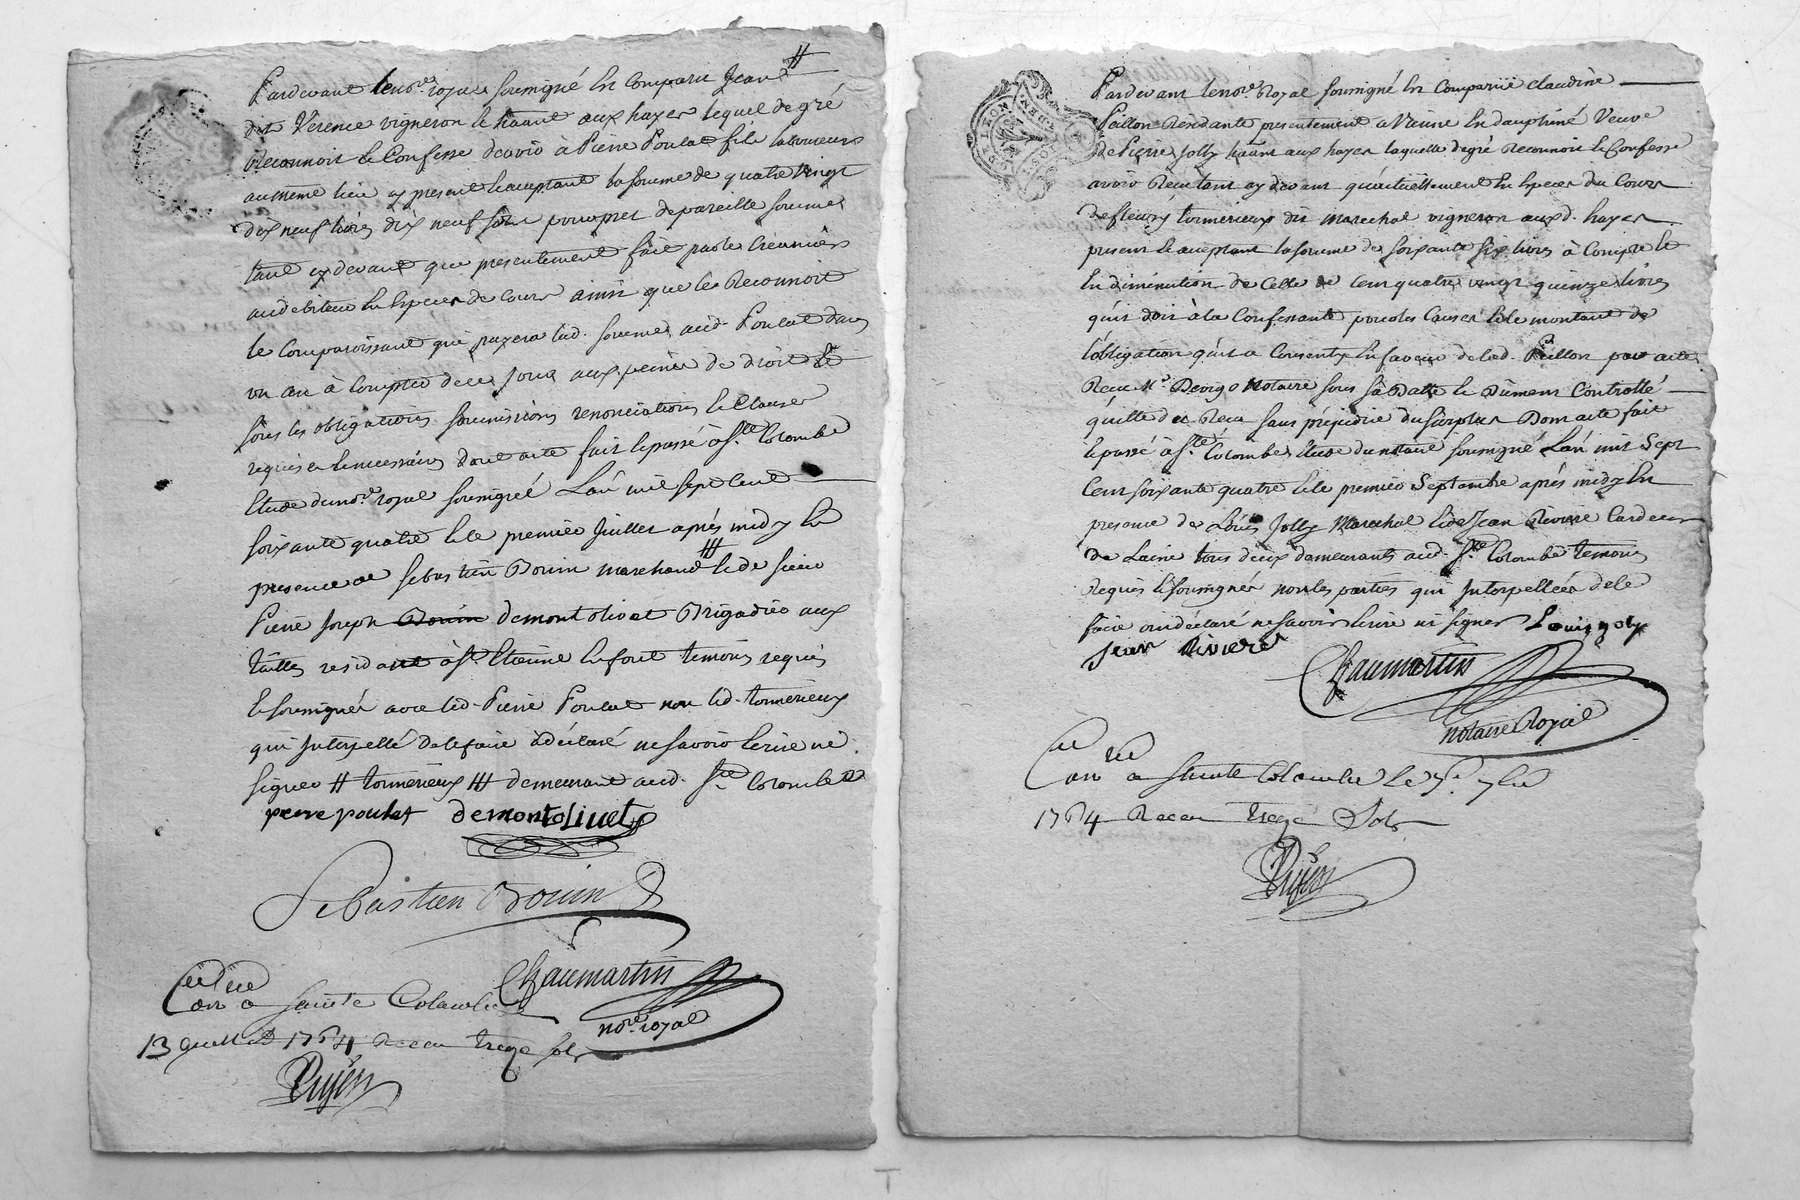 Pardevant lenore. royal soussigné En Comparu Jean #
dit Verence vigneron le haant aux hayes lequel de gré
Reconnoit & Confesse devoir à Pierre Poulat fils laboureur
au meme lieu cy present & acceptant la somme de quatre vingt
dix neuf livres dix neuf sols pour pret de pareille somme
tant cy devant que presentement fait par le Creancier
au debiteur En Especes de Cours ainsi que le Reconnoit
le Comparoissant qui payera lad. somme aud. Poulat dans
un an à Compter de ce jour aux peines de droit
sous les obligations soumissions renonciations & Clauses
requises & necessaires dont acte fait & passé à Ste. Colombe
Etude du nore. royal soussigné L'an mil sept cent
soixante quatre & le premier Juillet après midy En
presence de Sebastien Bouin marchand ### & de sieur
Pierre Joseph Bouin demontolivet Brigadier aux
tailles residant à St. Etienne En foret temoins requis
& soussignés avec led. Pierre Poulat non led. tormerieux
qui Interpellé de le faire a déclaré ne savoir Ecrire ni
signer # tormerieux ### demeurant aud. Ste Colombe
pierre poulat demontolivet
Sebastien Bouin
Chaumartin
nore. royal
Con a Sainte Colombe
13 Juillet 1764 Receu treze sols
Pardevant lenore. Royal soussigné En Comparüe Claudine
Paillon Residante presentement a Vienne En dauphiné Veuve
de Pierre Jolly haant aux hayes laquelle de gré Reconnoit & Confesse
avoir Receu tant cy devant qu'actuellement En Especes du Cours
de fleury tormerieux dit marechal vigneron auxd. hayes
present & acceptant la somme de soixante six livres à Compte &
En diminution de Celle de Cent quatre vingt quinze livres
qu'il doit à la Confessante pour les Causes & le montant de
l'obligation qu'il a Consenty En faveur de lad. Paillon par acte
Receu Me. Devigo Notaire sous sa Datte & Düment Controllé
quitte de Receu sans préjudice du surplus Dont acte fait
& passé à Ste. Colombe Etude du notaire soussigné L'an mil Sept
Cent soixante quatre & le premier Septembre après midy En
presence de Loüis Jolly Marechal & de Jean Riviere Cardeur
de Laine tous deux demeurants aud. Ste Colombe temoins
Requis & soussignés non les parties qui Interpellées de le
faire ont déclaré ne savoir Ecrire ni signer Louis joly
jean Riviere
Chaumartin
notaire Royal
Con a Sainte Colombe Le
1764 Receu treze Sols